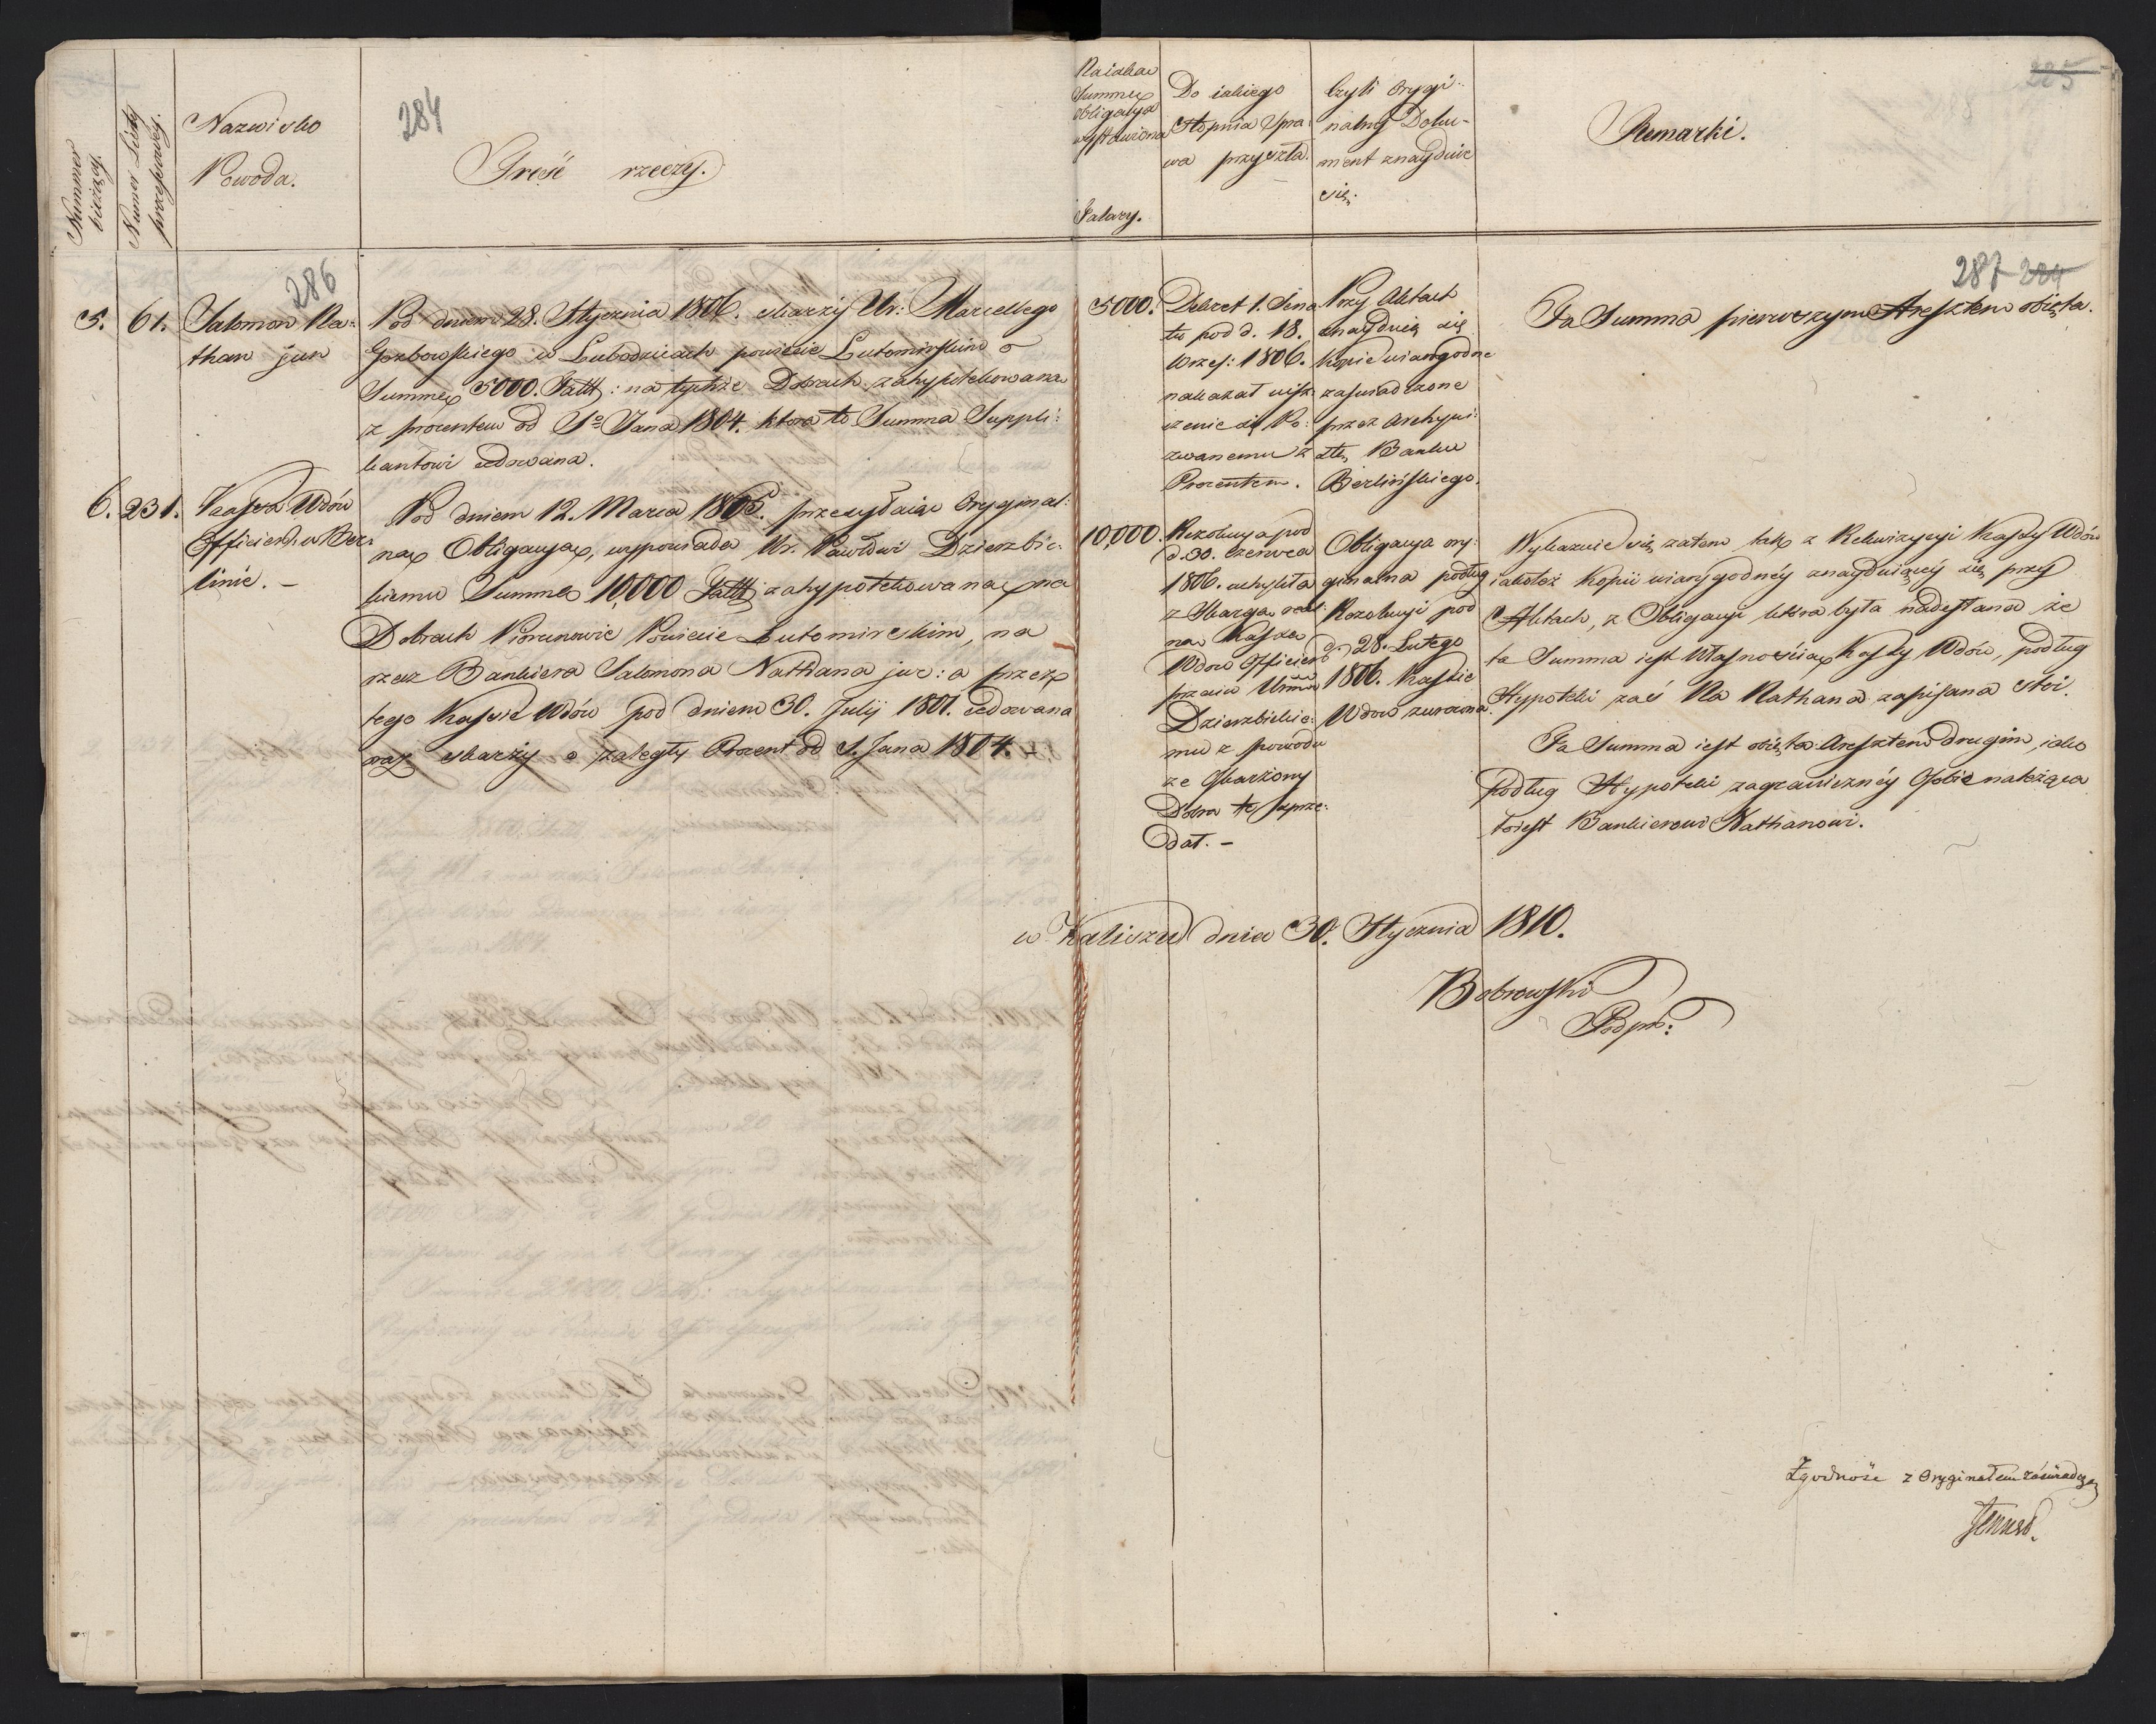 Nummer bieżący.
Numer Listy processowey.
Nazwisko
Powoda.
284
Treść rzeczy.
Na iaką
Summę
obligacya
wystawiona
Talary.
Do iakiego
Stopnia Spra-
wa przyszła.
Czyli Orygi-
nalny Doku-
ment znayduie
się.
Remarki.
225
286
287 224
5. 61. Salomon Na-
than jun
Pod dniem 28. Stycznia 1806. skarży Ur: Marcellego
w Lubodzicach powiecie Lutomirskim o
Summę 5000. Tall: na tychże Dobrach zahypotekowaną
z procentem od Sgo Jana 1804. która to Summa Suppli-
kantowi cedowana.
5000.
Dekret 1. Sena
tu pod d. 18.
Wrześ: 1806.
nakazał uisz-
czenie się Po-
zwanemu z
Procentem.
Przy Aktach
znayduią się
kopie wiarogodne
zaświadczone
przez Archywi-
stę Banku
Berlińskiego.
Ta Summa pierwszym Aresztem obięta.
6. 231. Kassa Wdów
Officiersk. w Ber-
linie. –
Pod dniem 12. Marca 1806. przesyłaiąc Oryginal-
ną Obligacyą, wypowiada Ur. Pawłowi Dzierzbic-
kiemu Summę 10,000 Tall zahypotekowaną na
Dobrach Piorunowie Powiecie Lutomirskim, na
rzecz Bankiera Salomona Nathana jun: a przez
tego Kassie Wdów pod dniem 30. Julij 1801. cedowaną
oraz skarży o zaległy Procent od S. Jana 1804.
10,000.
Rezolucya pod
d. 30. Czerwca
1806. uchyliła
z Skargą
na Kassę
Wdów Officiers
przeciw Urmu
Dzierzbickie-
mu z powodu
że Skarżony
Dobra te sprze-
dał. –
Obligacya ory-
ginalna podług
Rezolucyi pod
d. 28. Lutego
1806. Kassie
Wdów zwrócona.
Wykazuie się zatem tak z Rekwizycyi Kassy Wdów
iakoteż Kopii wiarygodnéy znayduiącéy się przy
Aktach, z Obligacyi która była nadesłana że
ta Summa iest Własnością Kassy Wdów, podług
Hypoteki zaś Na Nathana zapisana stoi.
Ta Summa iest obięta Aresztem drugim, iako
podług Hypoteki zagraniczney Osobie należąca
toiest Bankierowi Nathanowi.
w Kaliszu dnia 30. Stycznia 1810.
Bobrowski
Podpr:
Zgodność z Oryginałem zaświadcza